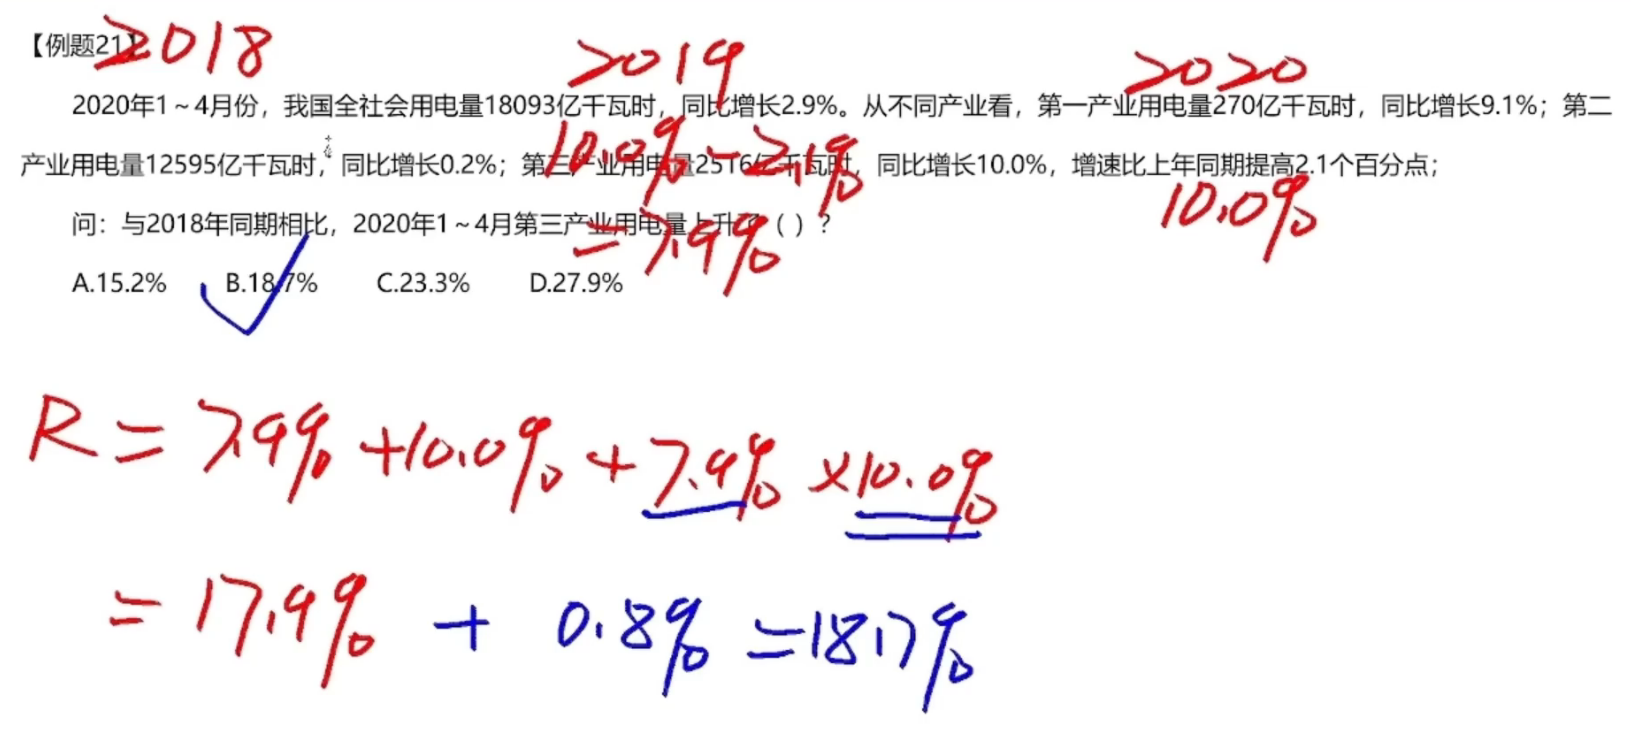 【例题21】
2018
2019
2020
2020年1～4月份，我国全社会用电量18093亿千瓦时，同比增长2.9%。从不同产业看，第一产业用电量270亿千瓦时，同比增长9.1%；第二
产业用电量12595亿千瓦时，同比增长0.2%；第三产业用电量2516亿千瓦时，同比增长10.0%，增速比上年同期提高2.1个百分点；
10.0%-2.1%
10.0%
问：与2018年同期相比，2020年1～4月第三产业用电量上升了（ ）？
=7.9%
A.15.2% B.18.7% C.23.3% D.27.9%
R=7.9%+10.0%+7.9%×10.0%
=17.9%+0.8%=18.7%